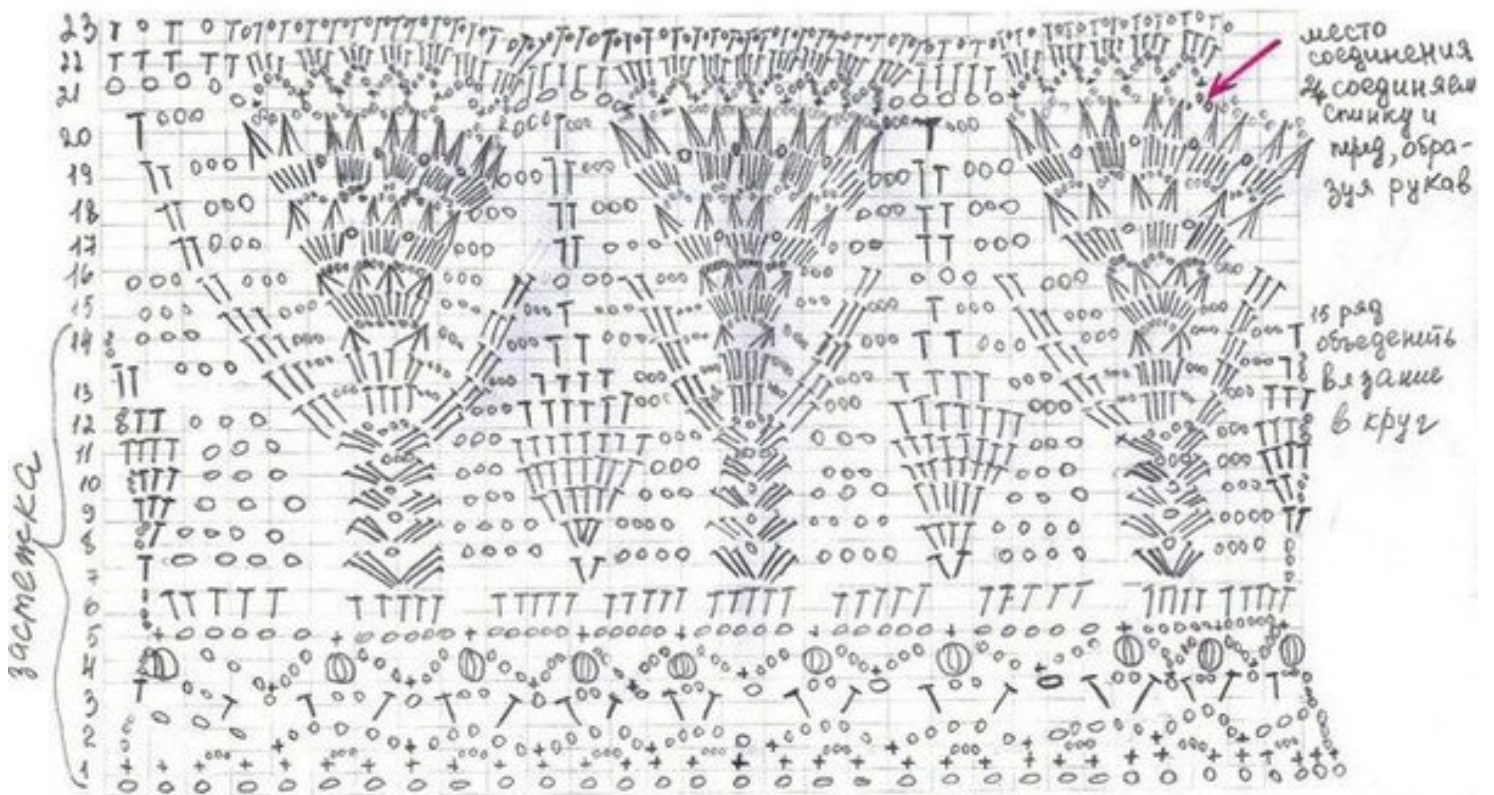 23
22
21
20
19
18
17
16
15
14
13
12
11
10
9
8
7
6
5
4
3
2
1
застежка
место
соединения
соединяем
спинку и
перед, обра-
зуя рукав
15 ряд
объеденить
вязание
в круг